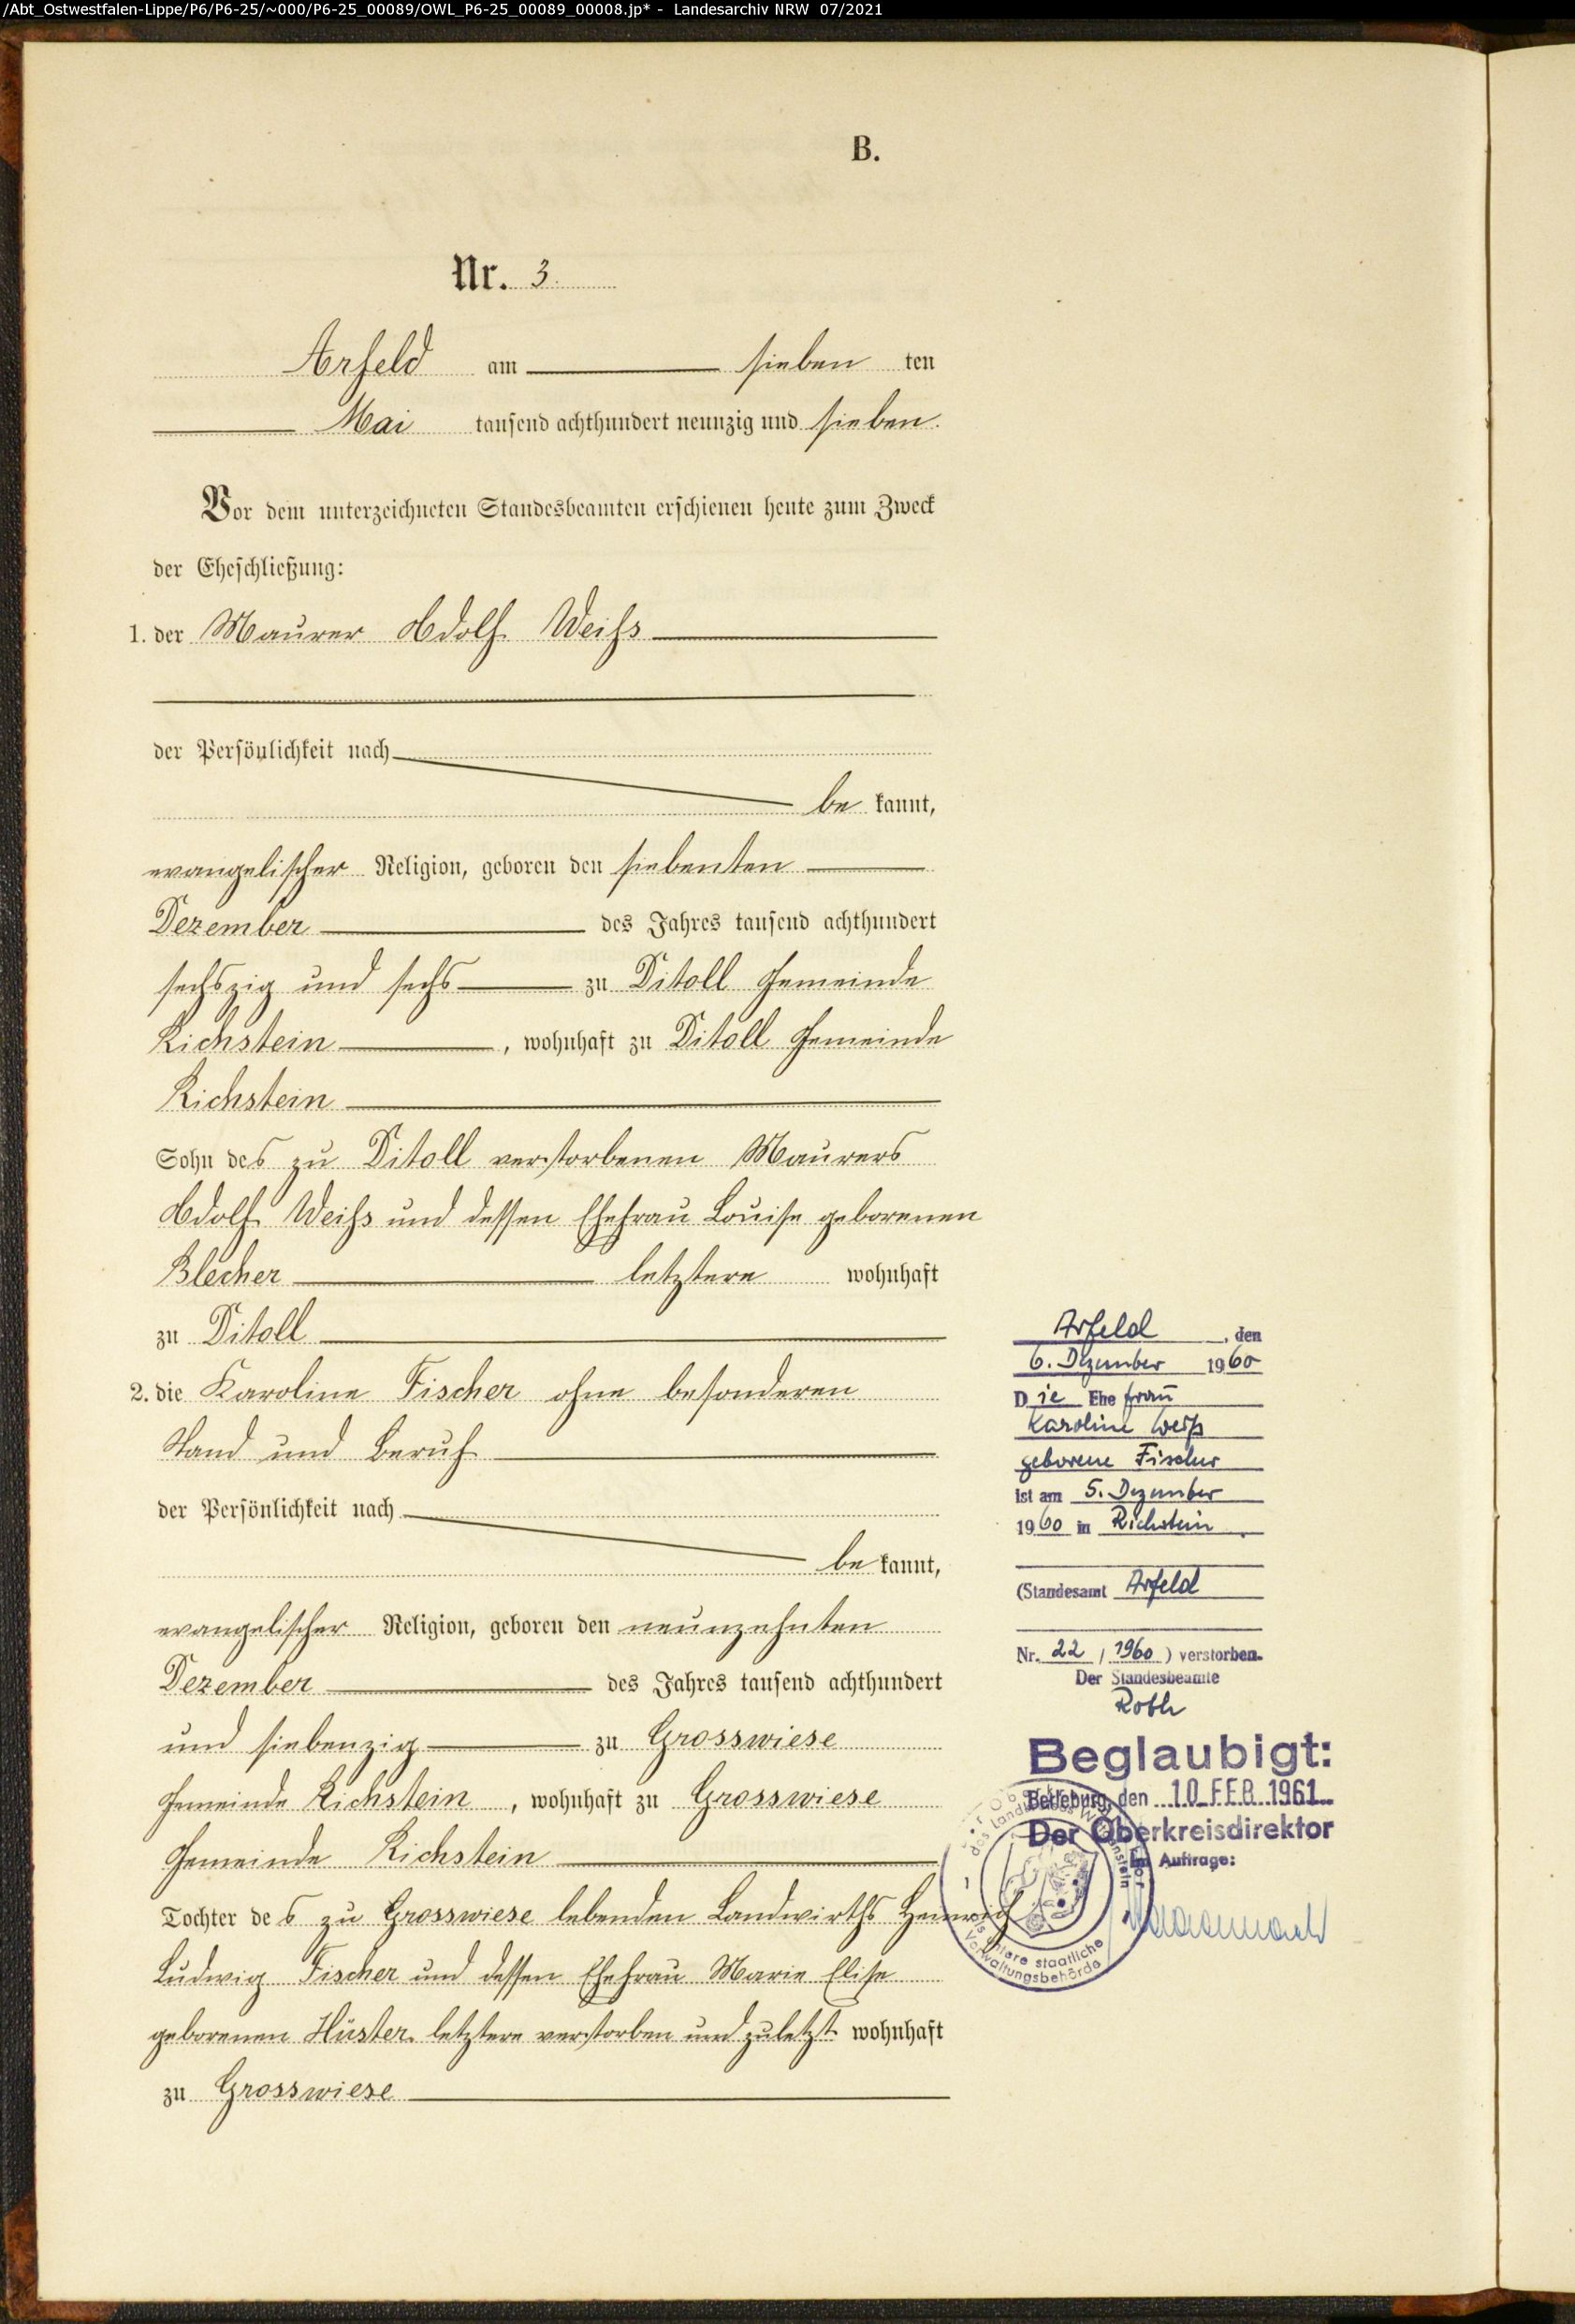 /Abt_Ostwestfalen-Lippe/P6/P6-25/~000/P6-25_00089/OWL_P6-25_00089_00008.jp* - Landesarchiv NRW 07/2021
B.
Nr. 3.
Arfeld am sieben ten
Mai tausend achthundert neunzig und sieben.
Vor dem unterzeichneten Standesbeamten erschienen heute zum Zweck
der Eheschließung:
1. der Maurer Adolf Weiss
der Persönlichkeit nach
be kannt,
evangelischer Religion, geboren den siebenten
Dezember des Jahres tausend achthundert
sechszig und sechs zu Ditoll Gemeinde
Richstein, wohnhaft zu Ditoll Gemeinde
Richstein
Sohn des zu Ditoll verstorbenen Maurers
Adolf Weiss und dessen Ehefrau Louise geborenen
Blecher letztere wohnhaft
zu Ditoll
2. die Karoline Fischer ohne besonderen
Stand und Beruf
der Persönlichkeit nach
be kannt,
evangelischer Religion, geboren den neunzehnten
Dezember des Jahres tausend achthundert
und siebenzig zu Grosswiese
Gemeinde Richstein, wohnhaft zu Grosswiese
Gemeinde Richstein
Tochter des zu Grosswiese lebenden Landwirths Heinrich
Ludwig Fischer und dessen Ehefrau Marie Elise
geborenen Hüster letztere verstorben und zuletzt wohnhaft
zu Grosswiese
Arfeld, den
6. Dezember 1960
Die Ehefrau
Karoline Weiß
geborene Fischer
ist am 5. Dezember
1960 in Richstein
(Standesamt Arfeld
Nr. 22 / 1960) verstorben.
Der Standesbeamte
Roth
Beglaubigt:
Berleburg, den 10. FEB. 1961
Der Oberkreisdirektor
Im Auftrage:
als untere staatliche
Verwaltungsbehörde